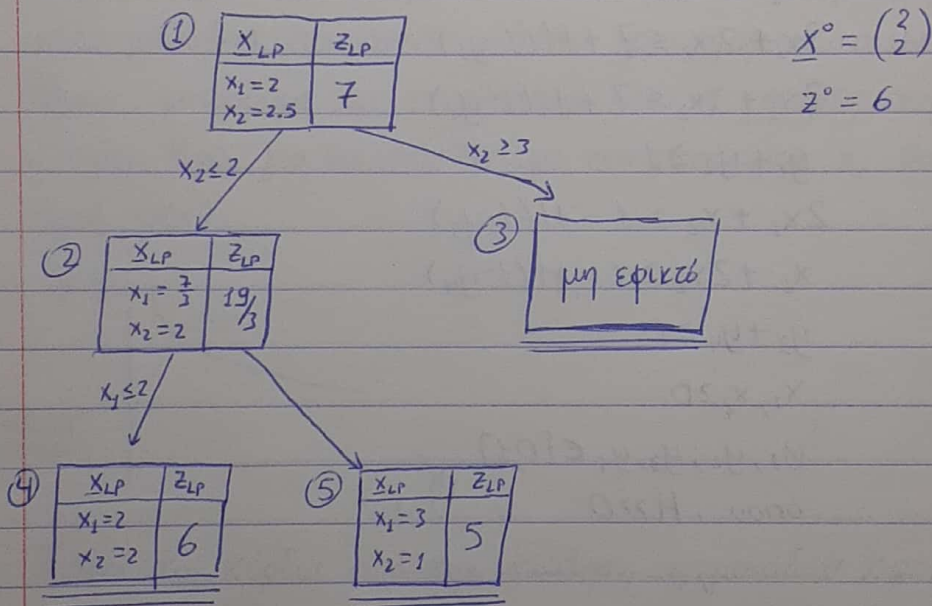 ① X_LP Z_LP
x₁=2
x₂=2.5
7
X° = (2 2)
Z° = 6
x₂≤2
x₂≥3
② X_LP Z_LP
x₁=7/3
x₂=2
19/3
③ μη εφικτό
x₁≤2
④ X_LP Z_LP
x₁=2
x₂=2
6
⑤ X_LP Z_LP
x₁=3
x₂=1
5